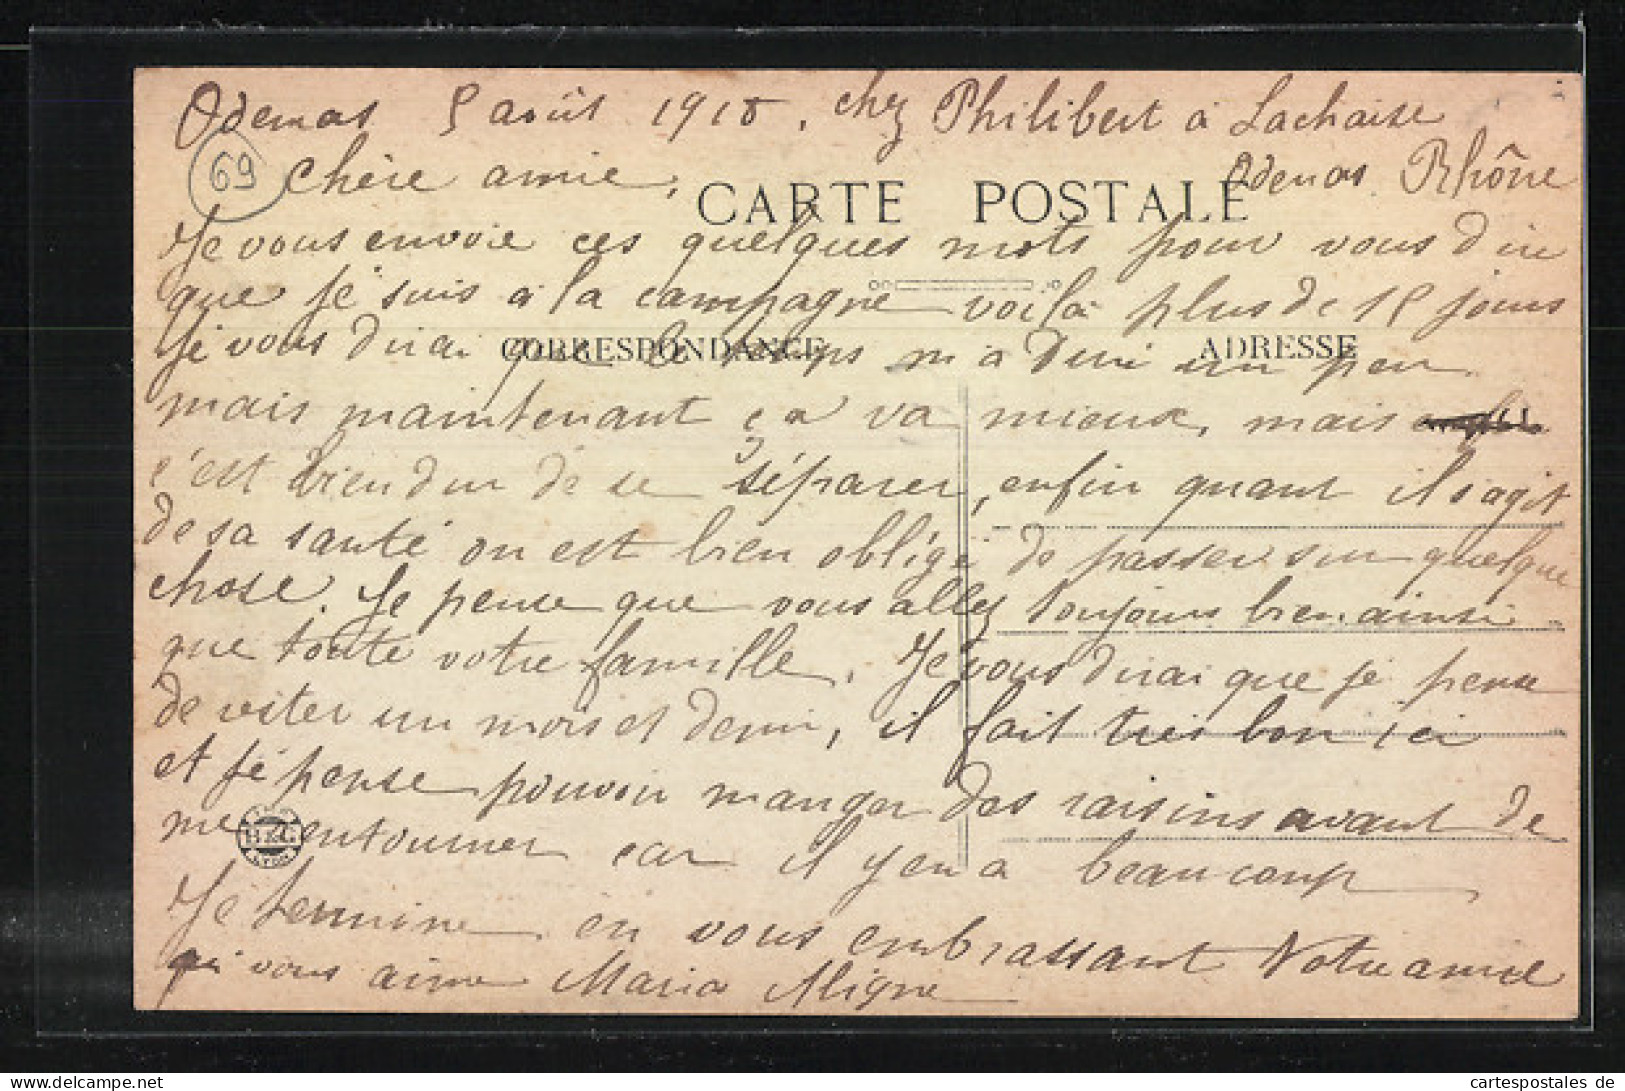 Odenas 5 août 1918, chez Philibert à Lachaise
Odenas Rhône
69
Chère amie,
CARTE POSTALE
Je vous envoie ces quelques mots pour vous dire
que je suis à la campagne voilà plus de 15 jours
Je vous dirai que le temps m'a duré un peu
CORRESPONDANCE
ADRESSE
mais maintenant ça va mieux, mais
c'est bien dur de se séparer, enfin quant il s'agit
de sa santé on est bien obligé de passer sur quelque
chose. Je pense que vous allez toujours bien ainsi
que toute votre famille. Je vous dirai que je pense
de rester un mois et demi, il fait très bon ici
et je pense pouvoir manger des raisins avant de
m'entourner car il y en a beaucoup
B & G
LYON
Je termine en vous embrassant Votre amie
qui vous aime Maria Aligne
cartespostales de